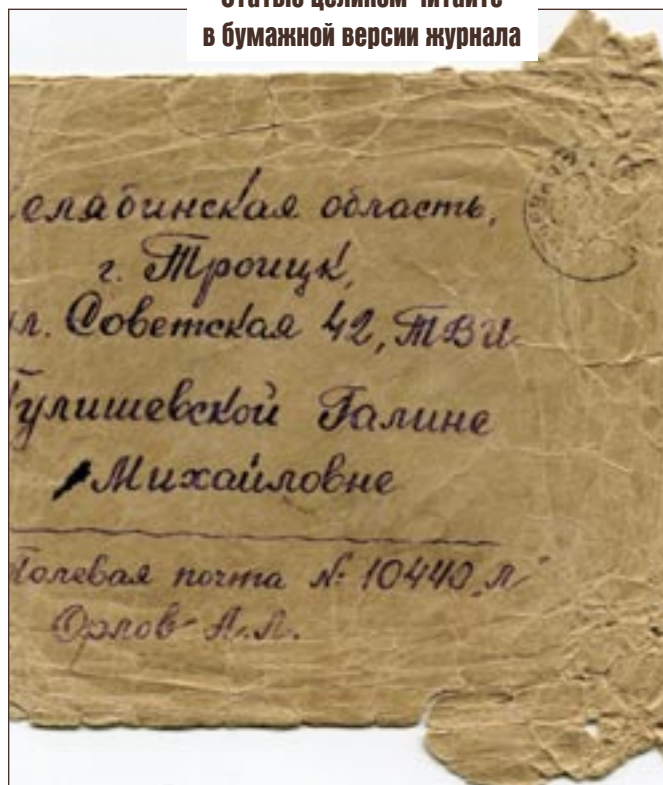 Статью целиком читайте
в бумажной версии журнала
елябинская область,
г. Троицк,
л. Советская 42, ТВИ
Гулишевской Галине
Михайловне
Полевая почта № 10440,Л
Орлов А.Л.